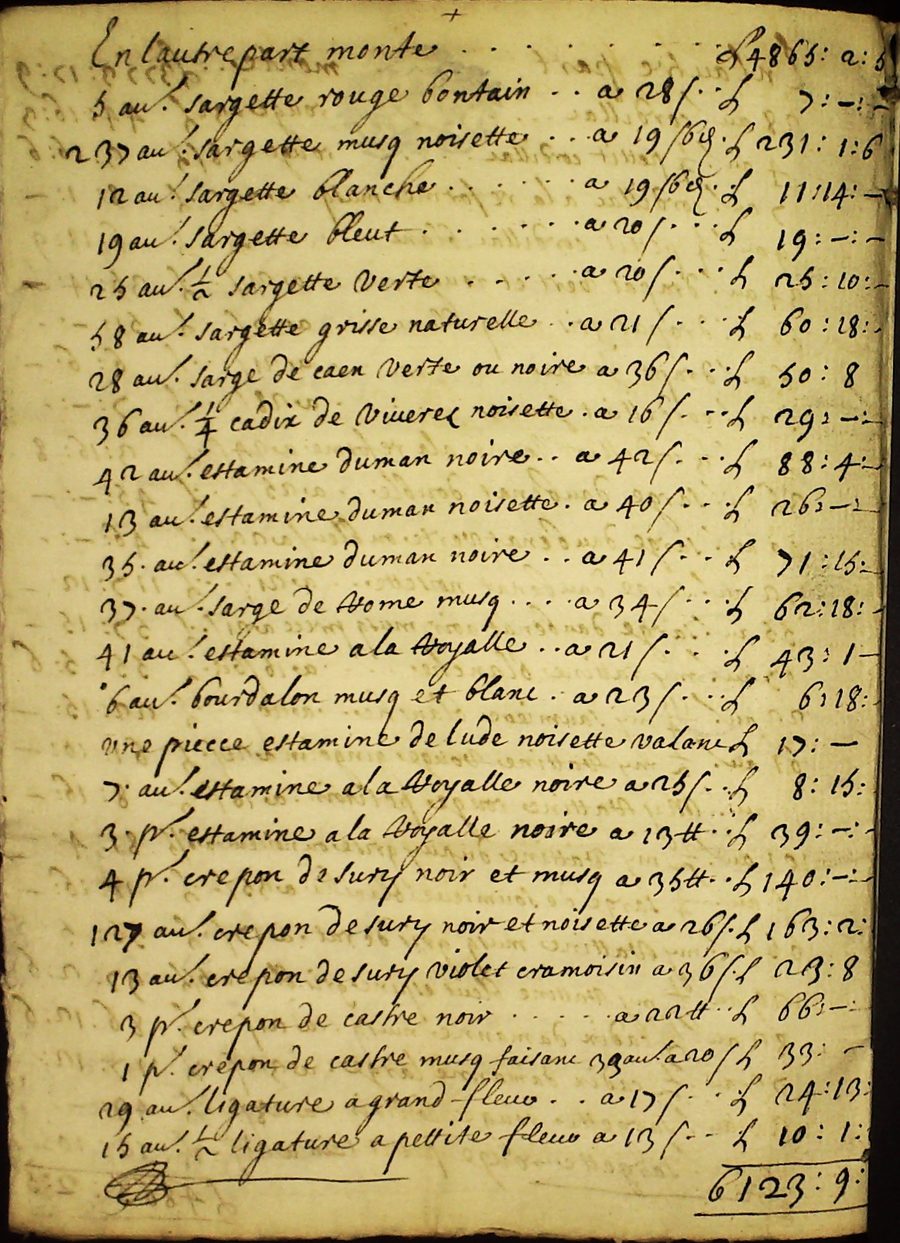 +
En lautre part monte . . . . . . . £ 4865 : 2 : 5
5 au.s sargette rouge bontain . . a 28 s . . £ 7 : – : –
237 au.s sargette musq noisette . . a 19 s 6 d . £ 231 : 1 : 6
12 au.s sargette blanche . . . . . . a 19 s 6 d . . £ 11 : 14 : –
19 au.s sargette bleut . . . . . . . a 20 s . . . £ 19 : – : –
25 au.s ½ sargette verte . . . . . a 20 s . . . £ 25 : 10 : –
58 au.s sargette grisse naturelle . . a 21 s . . . £ 60 : 18 :
28 au.s sarge de caen verte ou noire a 36 s . . . £ 50 : 8
36 au.s ¼ cadix de viveres noisette . a 16 s . . . £ 29 : – : –
42 au.s estamine duman noire . . a 42 s . . . £ 88 : 4 : –
13 au.s estamine duman noisette . a 40 s . . . £ 26 : – : –
35 . au.s estamine duman noire . . a 41 s . . . £ 71 : 15 : –
37 . au.s sarge de Rome musq . . . . a 34 s . . . £ 62 : 18 : –
41 au.s estamine a la Royalle . . a 21 s . . . £ 43 : 1 –
6 au.s bourdalon musq et blanc . . a 23 s . . . £ 6 : 18 :
vne piecce estamine de lude noisette valant £ 17 : –
7 . au.s estamine a la Royalle noire a 25 s . . £ 8 : 15 :
3 . p.s estamine a la Royalle noire a 13 tt . . £ 39 : – : –
4 p.s crepon de sury noir et musq a 35 tt . . £ 140 : – : –
127 au.s crepon de sury noir et noisette a 26 s . £ 163 : 2 :
13 au.s crepon de sury violet cramoisin a 36 s . £ 23 : 8
3 p.s crepon de castre noir . . . . . a 22 tt . . £ 66 : – :
1 p.s crepon de castre musq faisant 33 au.s a 20 s £ 33 : –
29 au.s ligature a grand fleur . . a 17 s . . . £ 24 : 13 :
15 au.s ½ ligature a pettite fleur a 13 s . . £ 10 : 1 :
6123 : 9 :